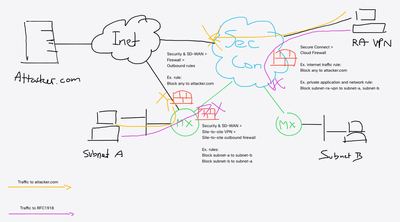 Inet
Sec
Con
RA VPN
Attacker.com
Security & SD-WAN +
Firewall +
Outbound rules
Ex. rule:
Block any to attacker.com
Secure Connect +
Cloud Firewall
Ex. internet traffic rule:
Block any to attacker.com
Ex. private application and network rule:
Block subnet-ra-vpn to subnet-a, subnet-b
MX
MX
Subnet A
Security & SD-WAN +
Site-to-site VPN +
Site-to-site outbound firewall
Ex. rules:
Block subnet-a to subnet-b
Block subnet-b to subnet-a
Subnet B
Traffic to attacker.com
Traffic to RFC1918